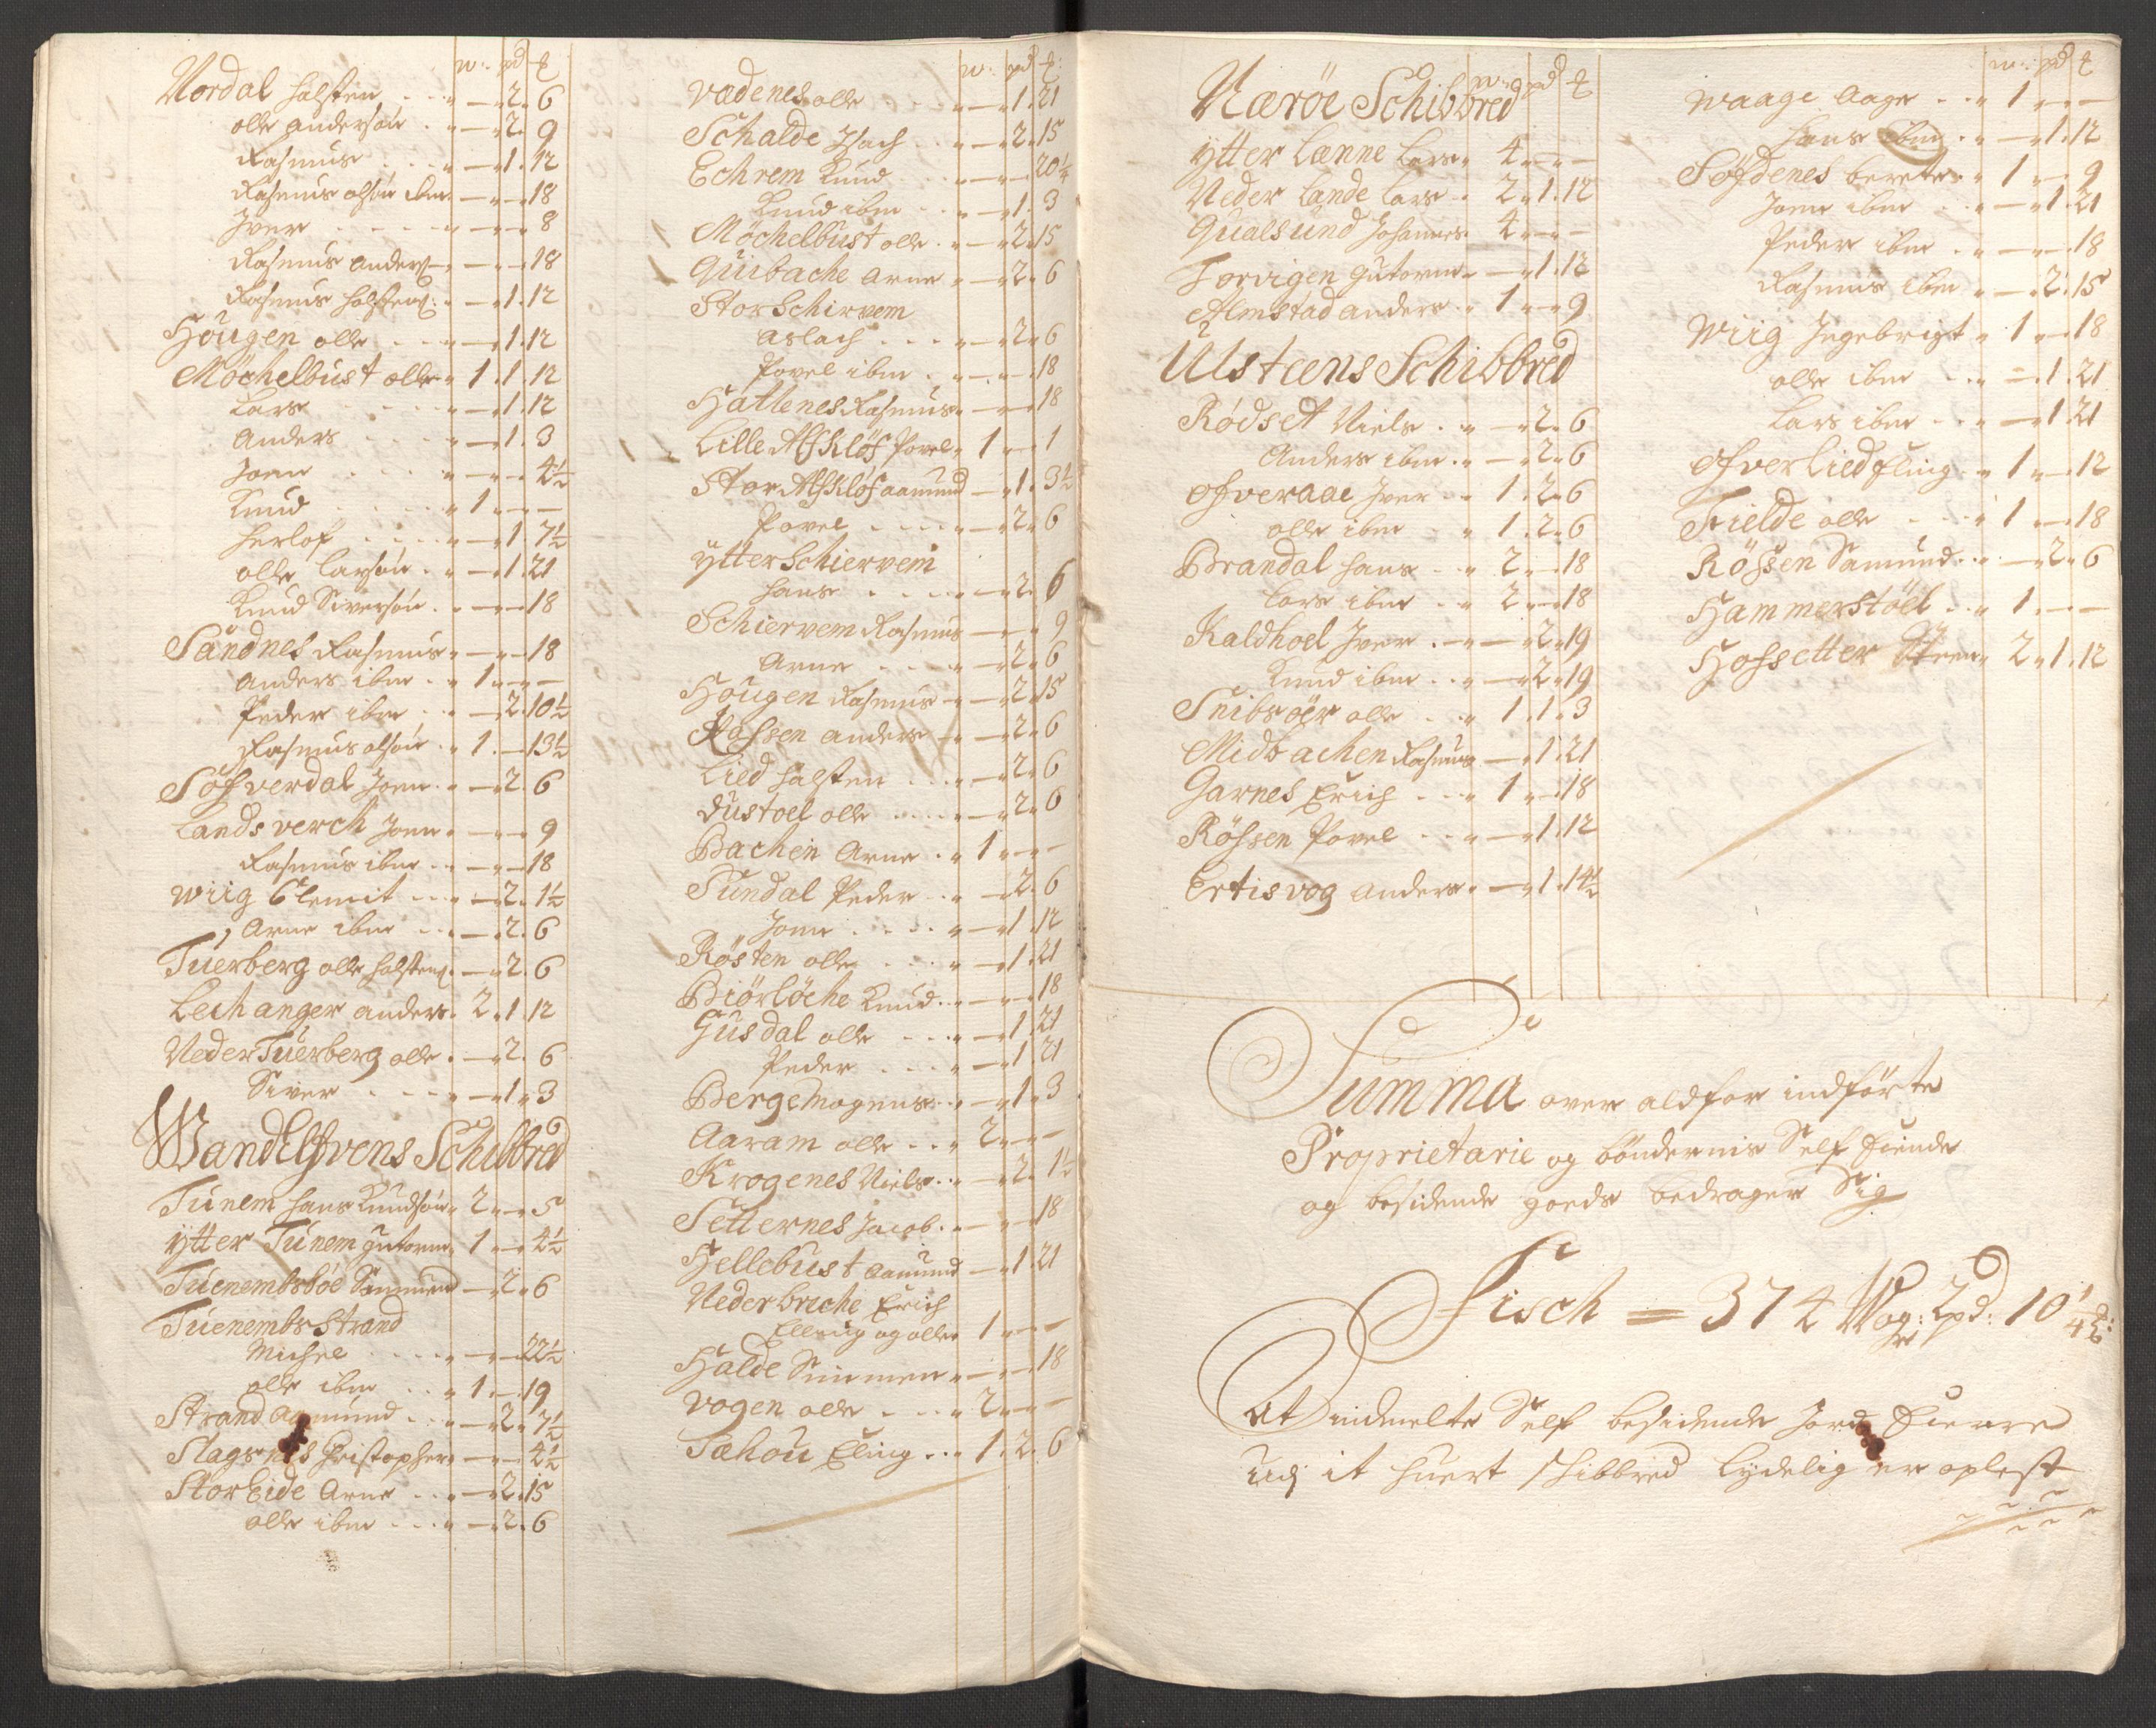 w: pd ℔
Nordal Halsten . . „ — 2 . 6
olle andersøn . „ — 2 . 9
Rasmus . . . „ — 1 . 12
Rasmus olsøn ibm „ — „ — 18
Iver . . . . „ — „ — 8
Rasmus anders: „ — „ — 18
Rasmus halstens: „ — 1 . 12
Hougen olle . . „ — 1 . 12
Møchelbust olle „ 1 . 1 . 12
Lars . . . . „ — 1 . 12
Anders . . . „ — 1 . 3
Joen . . . . „ — „ — 4½
Knud . . . . „ 1 „ — „ —
Herlof . . . . „ — 1 . 7½
olle larsøn . „ — 1 . 21
Knud Siversøn . „ — „ — 18
Sandnes Rasmus „ — „ — 18
anders ibm . „ 1 „ — „ —
Peder ibm . „ — 2 . 10½
Rasmus olsøn . „ 1 . — 13½
Søfverdal Joen . „ — 2 . 6
Landsverch Joen „ — „ — 9
Rasmus ibm . „ — „ — 18
Wiig Clemit . . „ — 2 . 1½
Arne ibm . . „ — 2 . 6
Tuerberg olle halstens: „ — 2 . 6
Lechanger anders . 2 . 1 . 12
Neder Tuerberg olle . — 2 . 6
Siver . . . „ — 1 . 3
Wandelfvens Schibbred
Tunem hans Knudsøn „ 2 „ — 5
Ytter Tunem gutorm „ 1 „ — 4½
Tuenembsbøe Simmund — 2 . 6
Tuenembs Strand
Michel . . . . „ — „ — 22½
olle ibm . . „ 1 . — 19
Strand Aamund . . „ — 2 . 7½
Slagsnes Christopher „ — „ — 4½
Stor Eide Arne . . „ — 2 . 15
olle ibm . . . „ — 2 . 6
w: pd ℔:
Vadenes olle . . . „ — 1 . 21
Schalde Isach . . „ — 2 . 15
Echrem Knud . . „ — „ — 20¼
Knud ibm . . „ — 1 . 3
Møchelbust olle . „ — 2 . 15
Gusbache Arne „ — 2 . 6
Stor Schirvem
Aslach . . . „ — 2 . 6
Povel ibm . „ — „ — 18
Hatlenes Rasmus „ — „ — 18
Lille Alfsløs Povel „ 1 „ — 1
Stor Alfsløs aamund — 1 . 3½
Povel . . . . „ — 2 . 6
Ytter Schiervem
Hans . . . . „ — 2 . 6
Schiervem Rasmus — „ — 9
Arne . . . „ — 2 . 6
Hougen Rasmus „ — 2 . 15
Rossen anders „ — 2 . 6
Lied Halsten . . „ — 2 . 6
Dustoel olle . . . „ — 2 . 6
Bachen Arne . „ 1 „ — „ —
Sundal Peder . . „ — 2 . 6
Joen . . . . „ — 1 . 12
Røsten olle . . . „ — 1 . 21
Biørløche Knud . „ — „ — 18
Gusdal olle . . . „ — 1 . 21
Peder . . . „ — 1 . 21
Berge Mogens . . „ — 1 . 3
Aaram olle . . „ 2 „ — „ —
Krogenes Niels . . „ — 2 . 1½
Setternes Jacob . „ — „ — 18
Hellebust aamund „ — 1 . 21
Nederbreche Erich
Elling og olle „ 1 „ — „ —
Halde Simmen „ — „ — 18
Vogen olle . . . „ 2 „ — „ —
Sæhou Eling . . „ 1 . 2 . 6
w: pd ℔
Nærøe Schibbred
Ytter Lanne Lars „ 4 „ — „ —
Neder Lande Lars . „ 2 . 1 . 12
Qualsund Johannes „ 4 „ — „ —
Torvigen gutorm „ — 1 . 12
Almestad anders . „ 1 „ — 9
Ulsteens Schibbred
Rødset Niels . „ — 2 . 6
Anders ibm . „ — 2 . 6
Ofveraae Iver . „ 1 . 2 . 6
olle ibm . „ 1 . 2 . 6
Brandal Hans . „ 2 „ — 18
Lars ibm . „ 2 „ — 18
Kaldhoel Iver . „ — 2 . 19
Knud ibm . . „ — 2 . 19
Snibsøer olle . . „ 1 . 1 . 3
Midbachen Rasmus — 1 . 21
Garnes Erich . . „ 1 „ — 18
Røssen Povel . . „ — 1 . 12
Ertisvog anders . — 1 . 14½
w: pd ℔
Waage Aage . . „ 1 „ — „ —
Hans ibm . „ — 1 . 12
Søfdenes berete . „ 1 „ — 9
Joen ibm . . „ — 1 . 21
Peder ibm . „ — „ — 18
Rasmus ibm . „ — 2 . 15
Wiig Ingebrigt „ 1 „ — 18
olle ibm . . „ — 1 . 21
Lars ibm . . „ — 1 . 21
Ofverlied Eling . „ 1 „ — 12
Fielde olle . . „ 1 „ — 18
Røssen Samund . „ — 2 . 6
Hammerstøel . . „ 1 „ — „ —
Hofsetter Steen „ 2 . 1 . 12
Summa over aldfor indførte
Proprietarie og bøndernis Self Eiende
og besidende goeds bedrager Sig
Fisch = 374 Wog: 2pd: 10¼ ℔:
At indmelte Self besidende Jorde Eiere
udj it huert schibbred lydelig er oplest